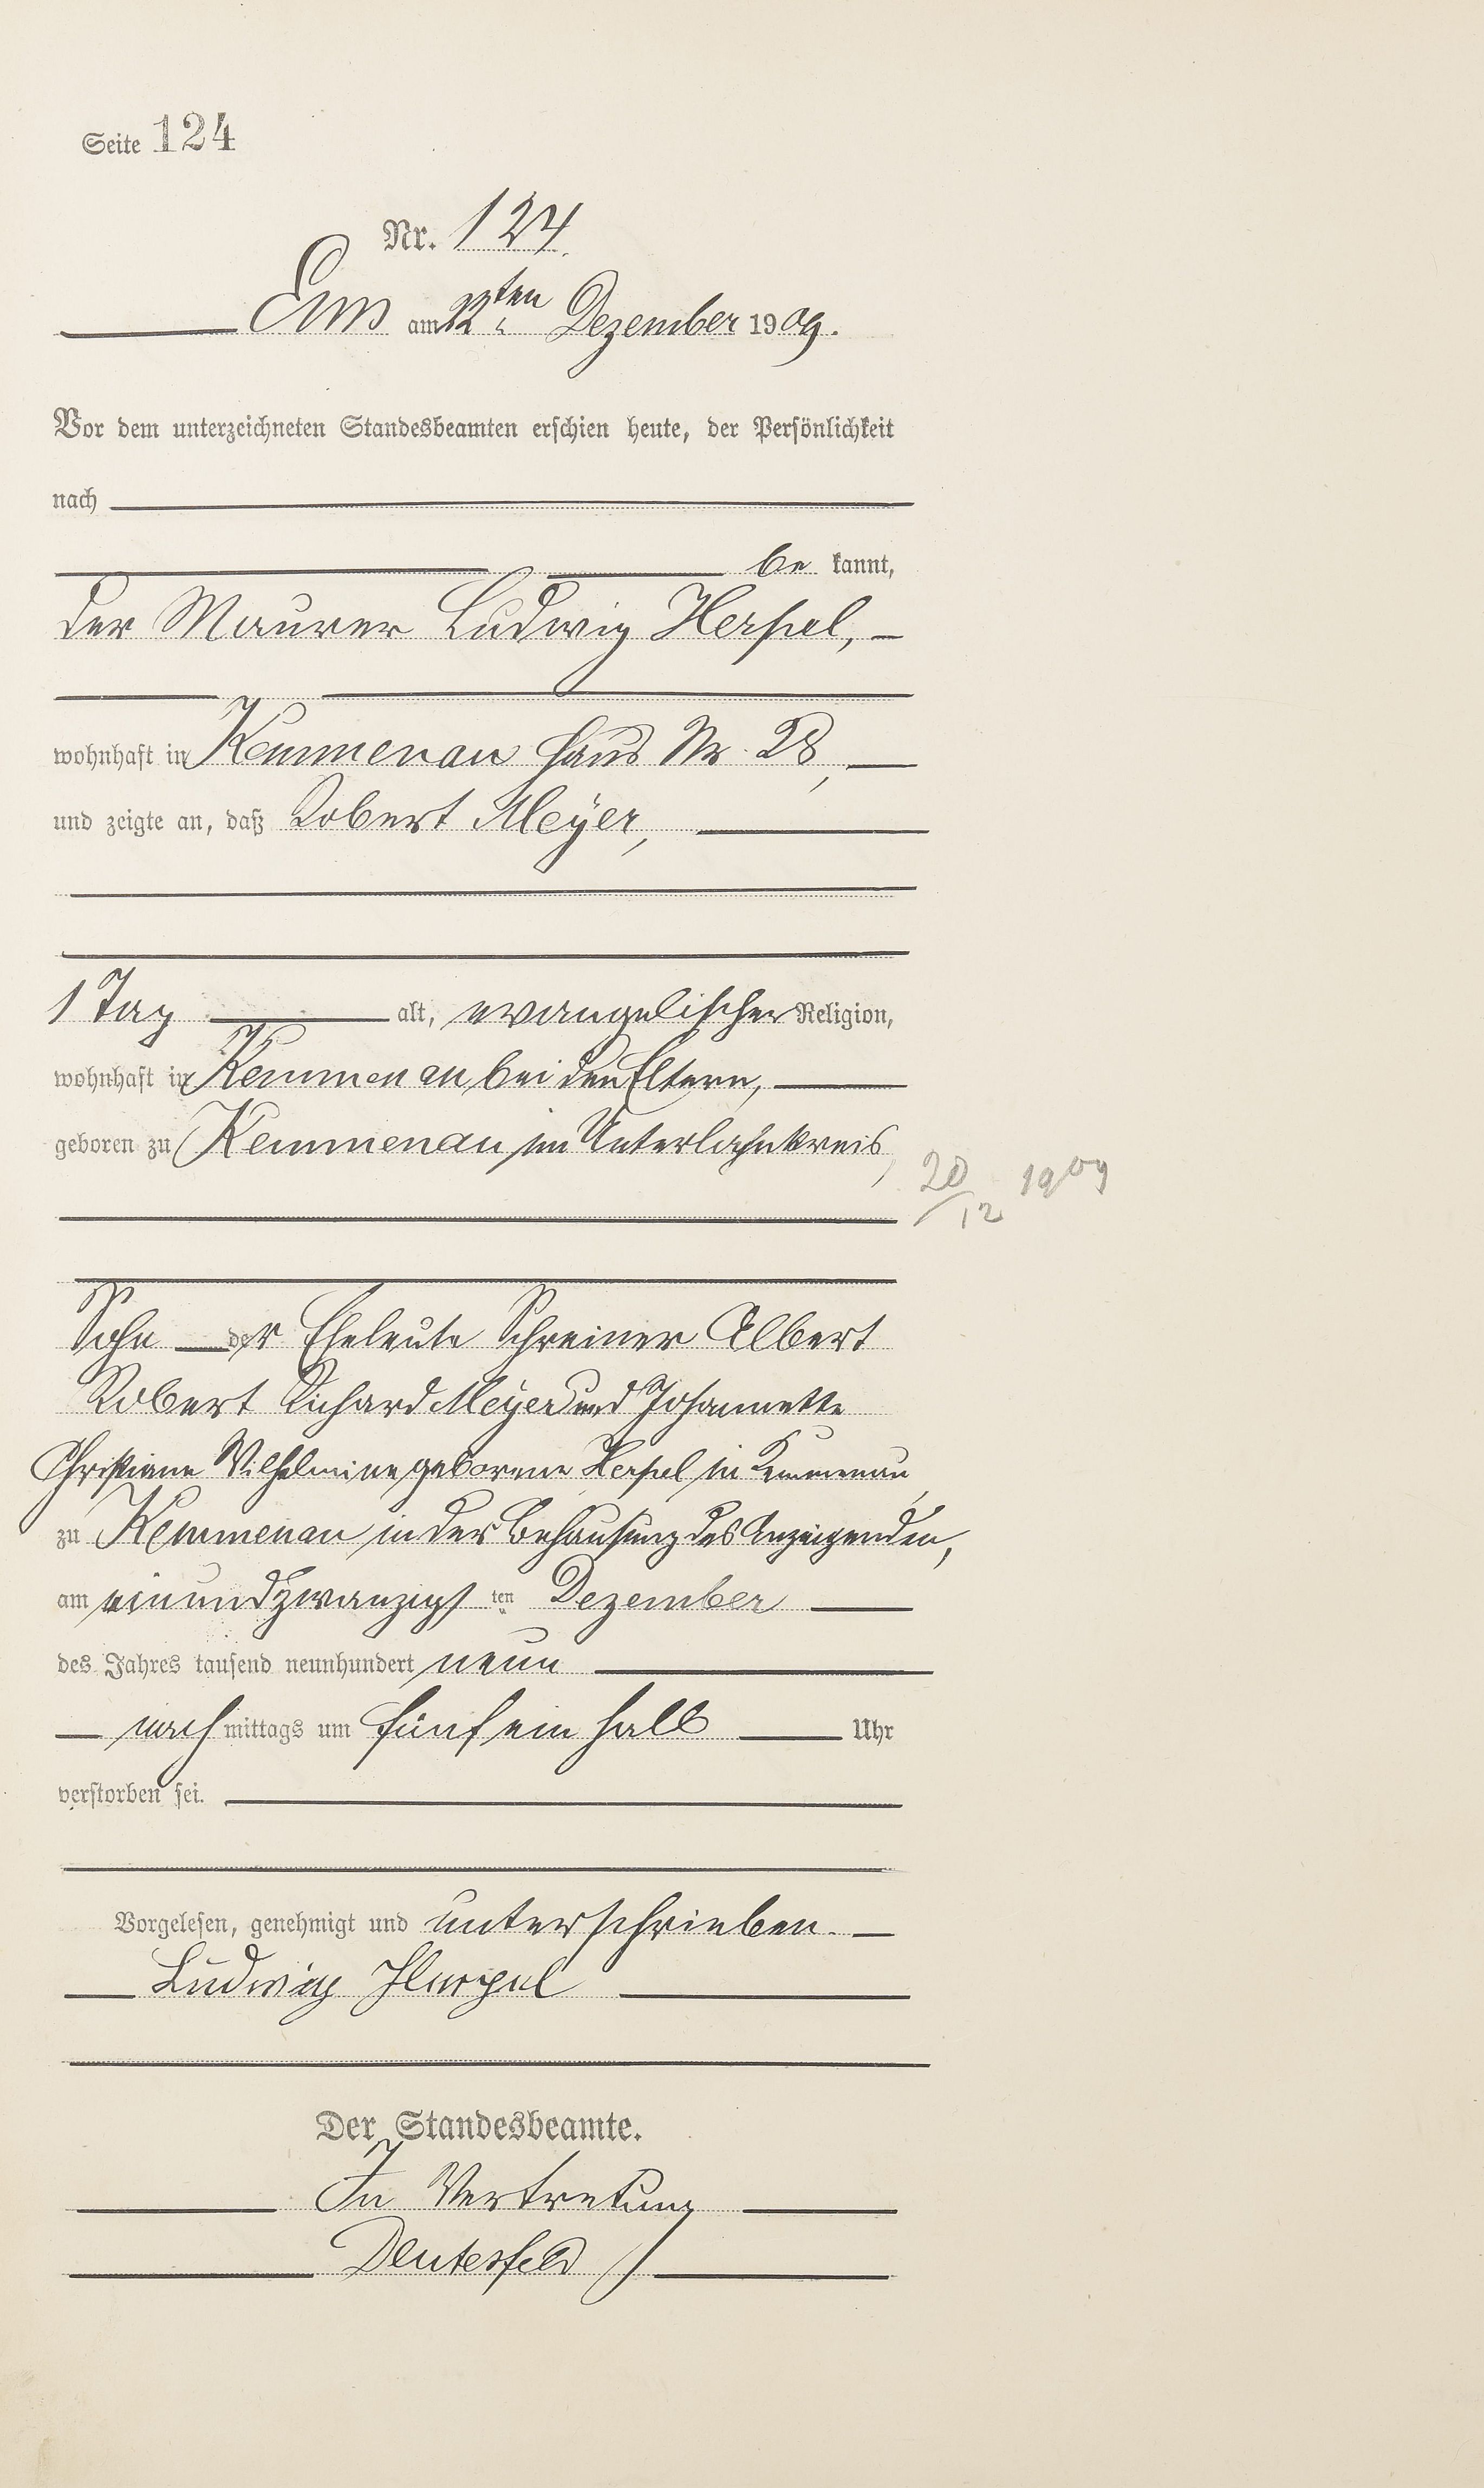 Seite 124
Nr. 124.
Ems am 22ten Dezember 1909.
Vor dem unterzeichneten Standesbeamten erschien heute, der Persönlichkeit
nach
be kannt,
der Maurer Ludwig Herpel,
wohnhaft in Kemmenau Haus Nr. 28,
und zeigte an, daß Robert Meÿer,
1 Tag alt, evangelischer Religion,
wohnhaft in Kemmenau bei den Eltern,
geboren zu Kemmenau im Unterlahnkreis,
20/12 1909
Sohn der Eheleute Schreiner Albert
Robert Richard Meÿer und Johannette
Christiane Wilhelmine geborene Herpel in Kemmenau
zu Kemmenau in der Behausung des Anzeigenden,
am einundzwanzigs ten Dezember
des Jahres tausend neunhundert neun
nach mittags um fünf ein halb Uhr
verstorben sei.
Vorgelesen, genehmigt und unterschrieben.
Ludwig Herpel
Der Standesbeamte.
In Vertretung